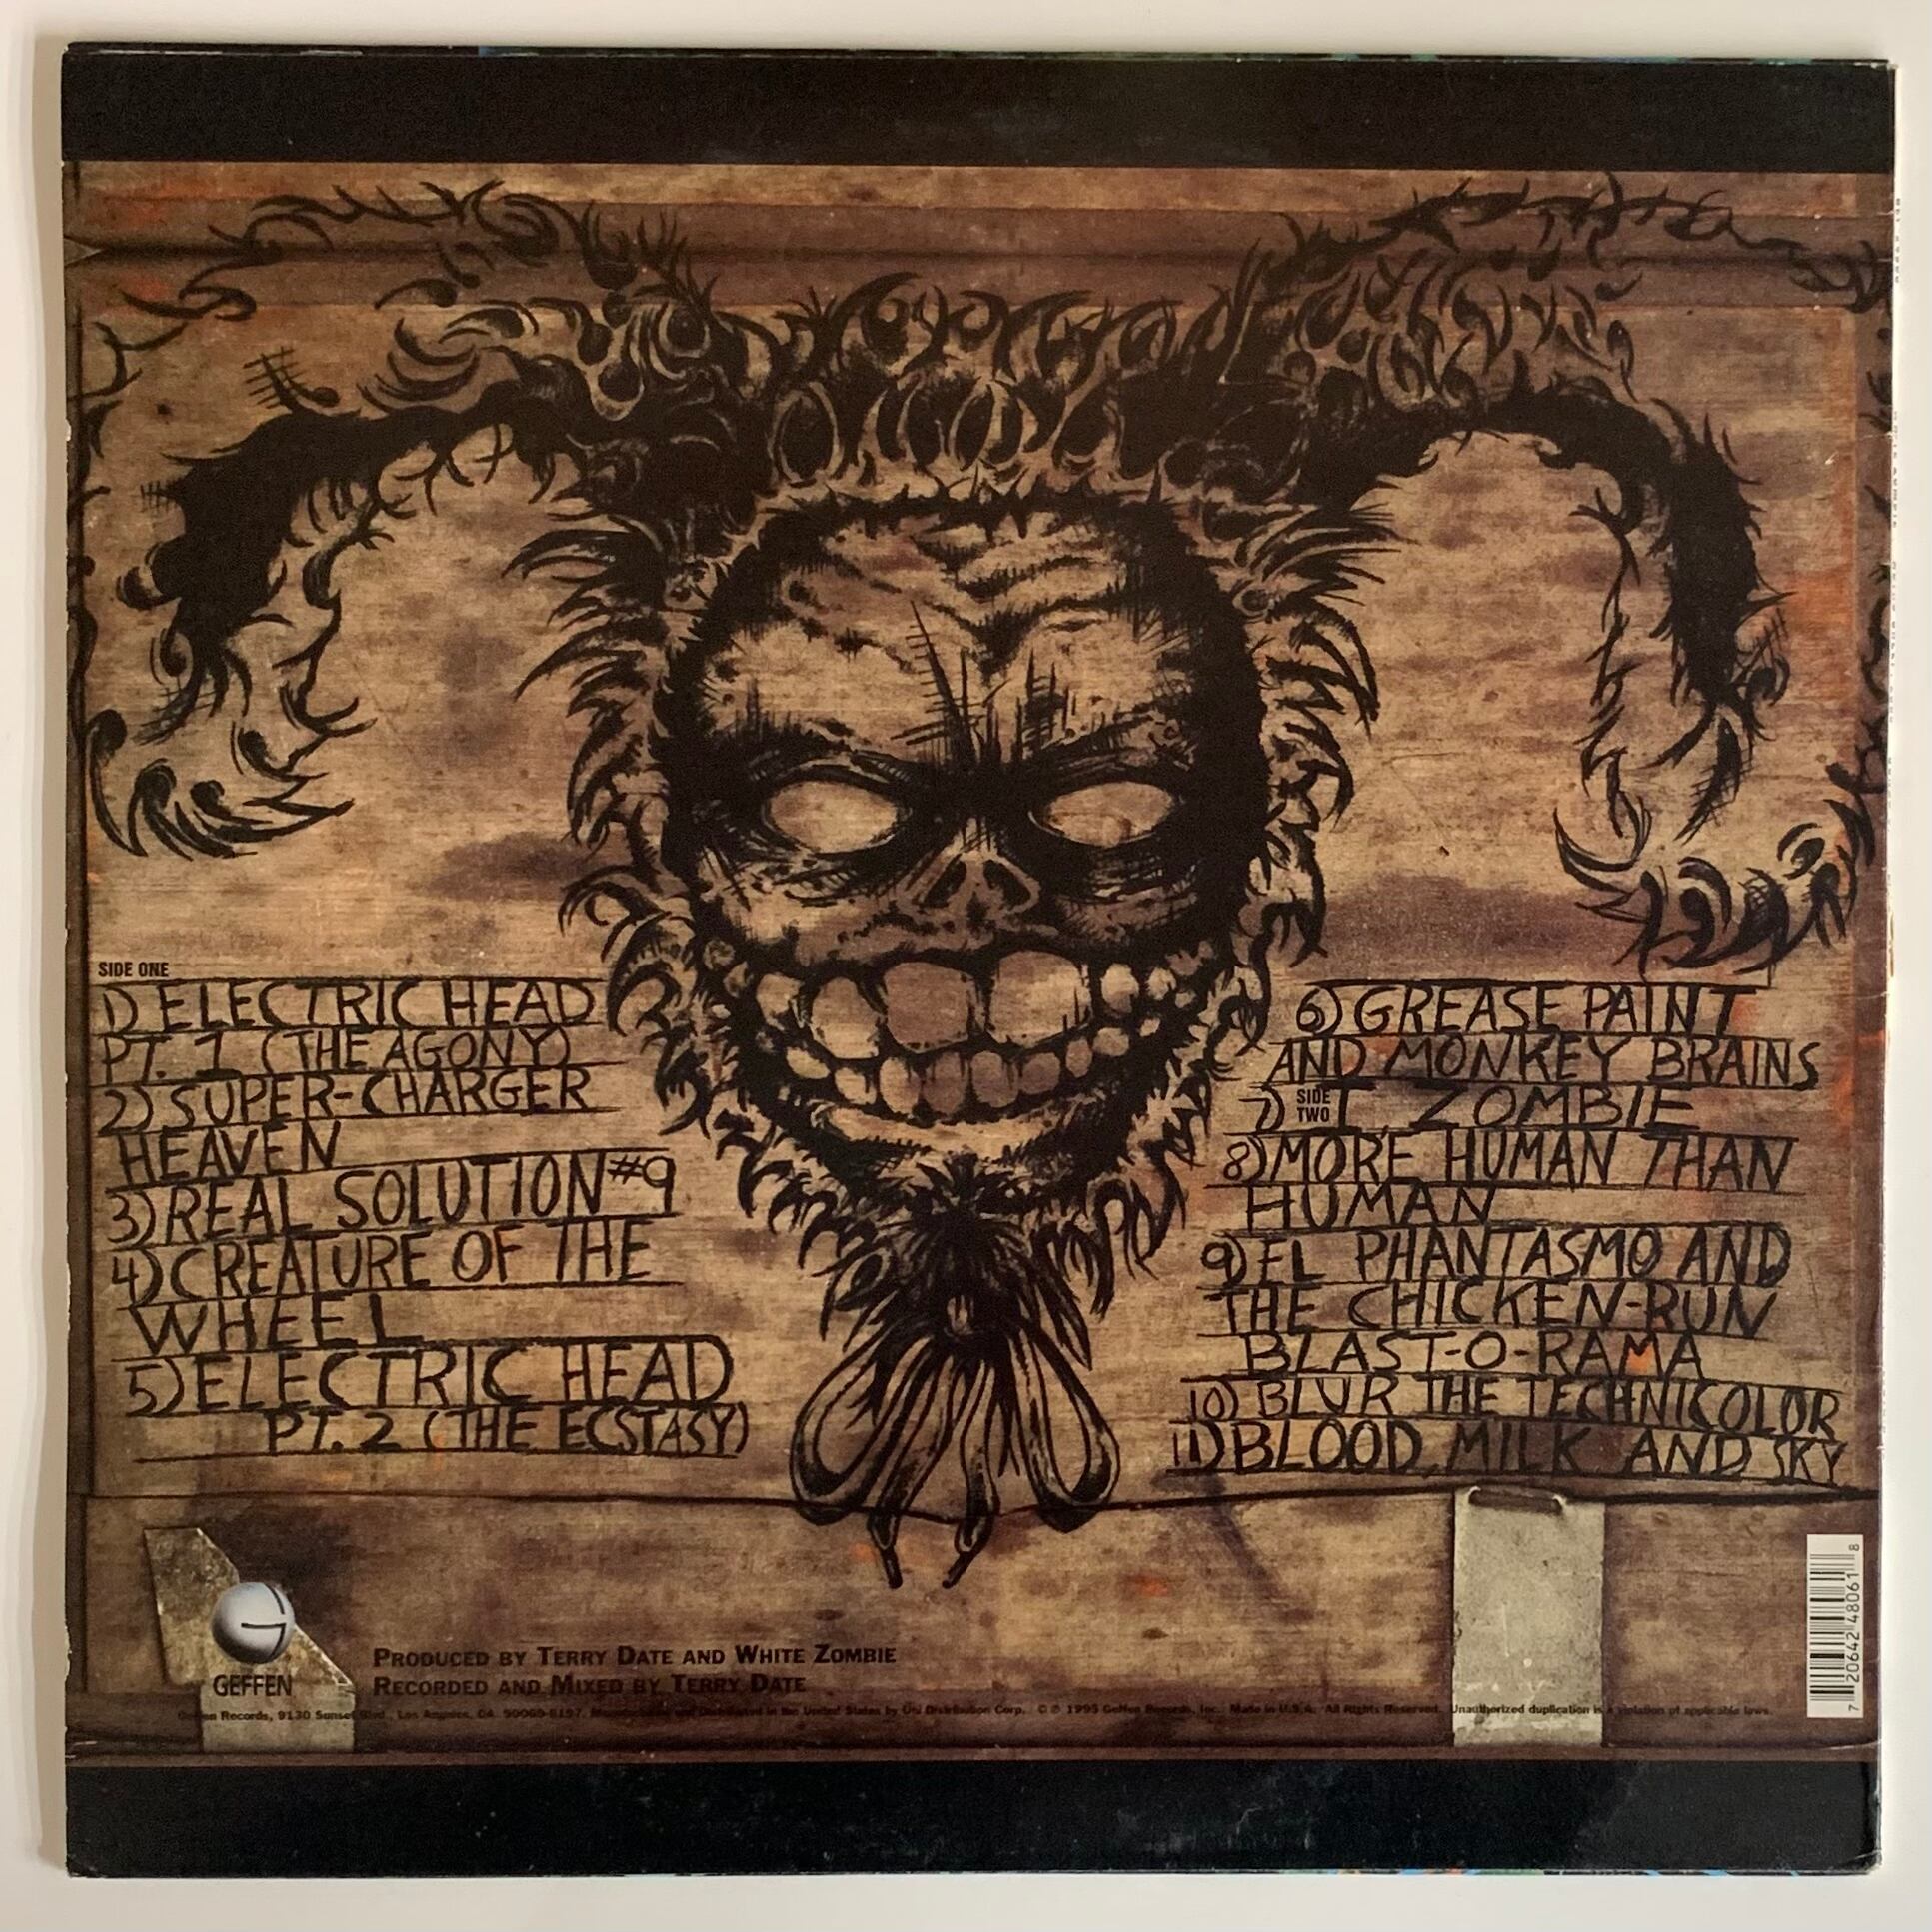 SIDE ONE
1) ELECTRIC HEAD
PT. 1 (THE AGONY)
2) SUPER-CHARGER
HEAVEN
3) REAL SOLUTION #9
4) CREATURE OF THE
WHEEL
5) ELECTRIC HEAD
PT. 2 (THE ECSTASY)
6) GREASE PAINT
AND MONKEY BRAINS
SIDE
TWO
7) I, ZOMBIE
8) MORE HUMAN THAN
HUMAN
9) EL PHANTASMO AND
THE CHICKEN-RUN
BLAST-O-RAMA
10) BLUR THE TECHNICOLOR
11) BLOOD, MILK AND SKY
GEFFEN
PRODUCED BY TERRY DATE AND WHITE ZOMBIE
RECORDED AND MIXED BY TERRY DATE
Geffen Records, 9130 Sunset Blvd., Los Angeles, CA 90069-6197. Manufactured and Distributed in the United States by Uni Distribution Corp. © ℗ 1995 Geffen Records, Inc. Made in U.S.A. All Rights Reserved. Unauthorized duplication is a violation of applicable laws.
7 20642 48061 8